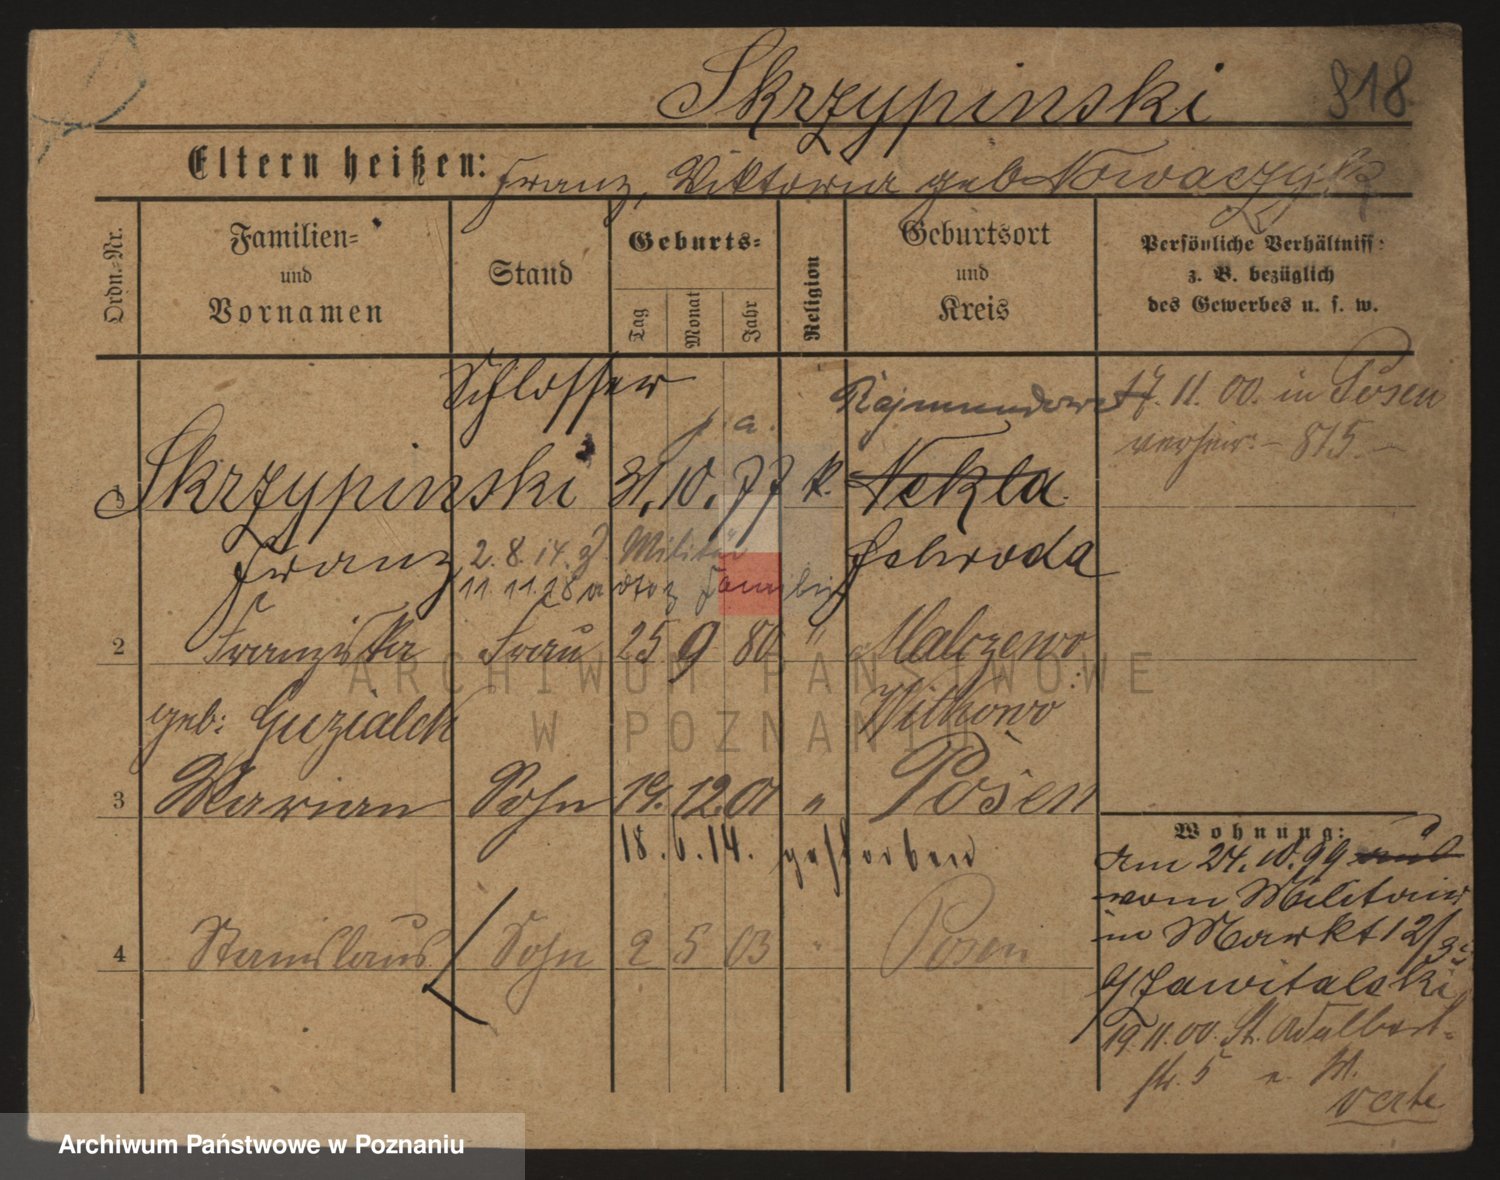 Skrzypinski 918
Eltern heißen: Franz, Viktoria geb Nowaczyk
Ordn.-Nr.
Familien-
und
Vornamen
Stand
Geburts-
Tag
Monat
Jahr
Religion
Geburtsort
und
Kreis
Persönliche Verhältniss:
z. B. bezüglich
des Gewerbes u. s. w.
Schlosser
p. a.
Rajmundowo
17. 11. 00. in Posen
verheir. - 815 -
1 Skrzypinski 31. 10. 77 k. Nekla
Franz
Schroda
2. 8. 14. z. Militär
11. 11. 18 Familie
2 Franziska Frau 25 9 80 " Malczewo
geb: Guzialek Witkowo
3 Marian Sohn 19. 12. 01 " Posen
18. 6. 14. gestorben
4 Stanislaus Sohn 2 5 03 " Posen
Wohnung:
Am 24. 10. 99
vom Militair
in Markt 12/
b/ Zawitalski
19. 11. 00. St. Adalbert-
str. 5 M.
verte
ARCHIWUM PAŃSTWOWE
W POZNANIU
Archiwum Państwowe w Poznaniu